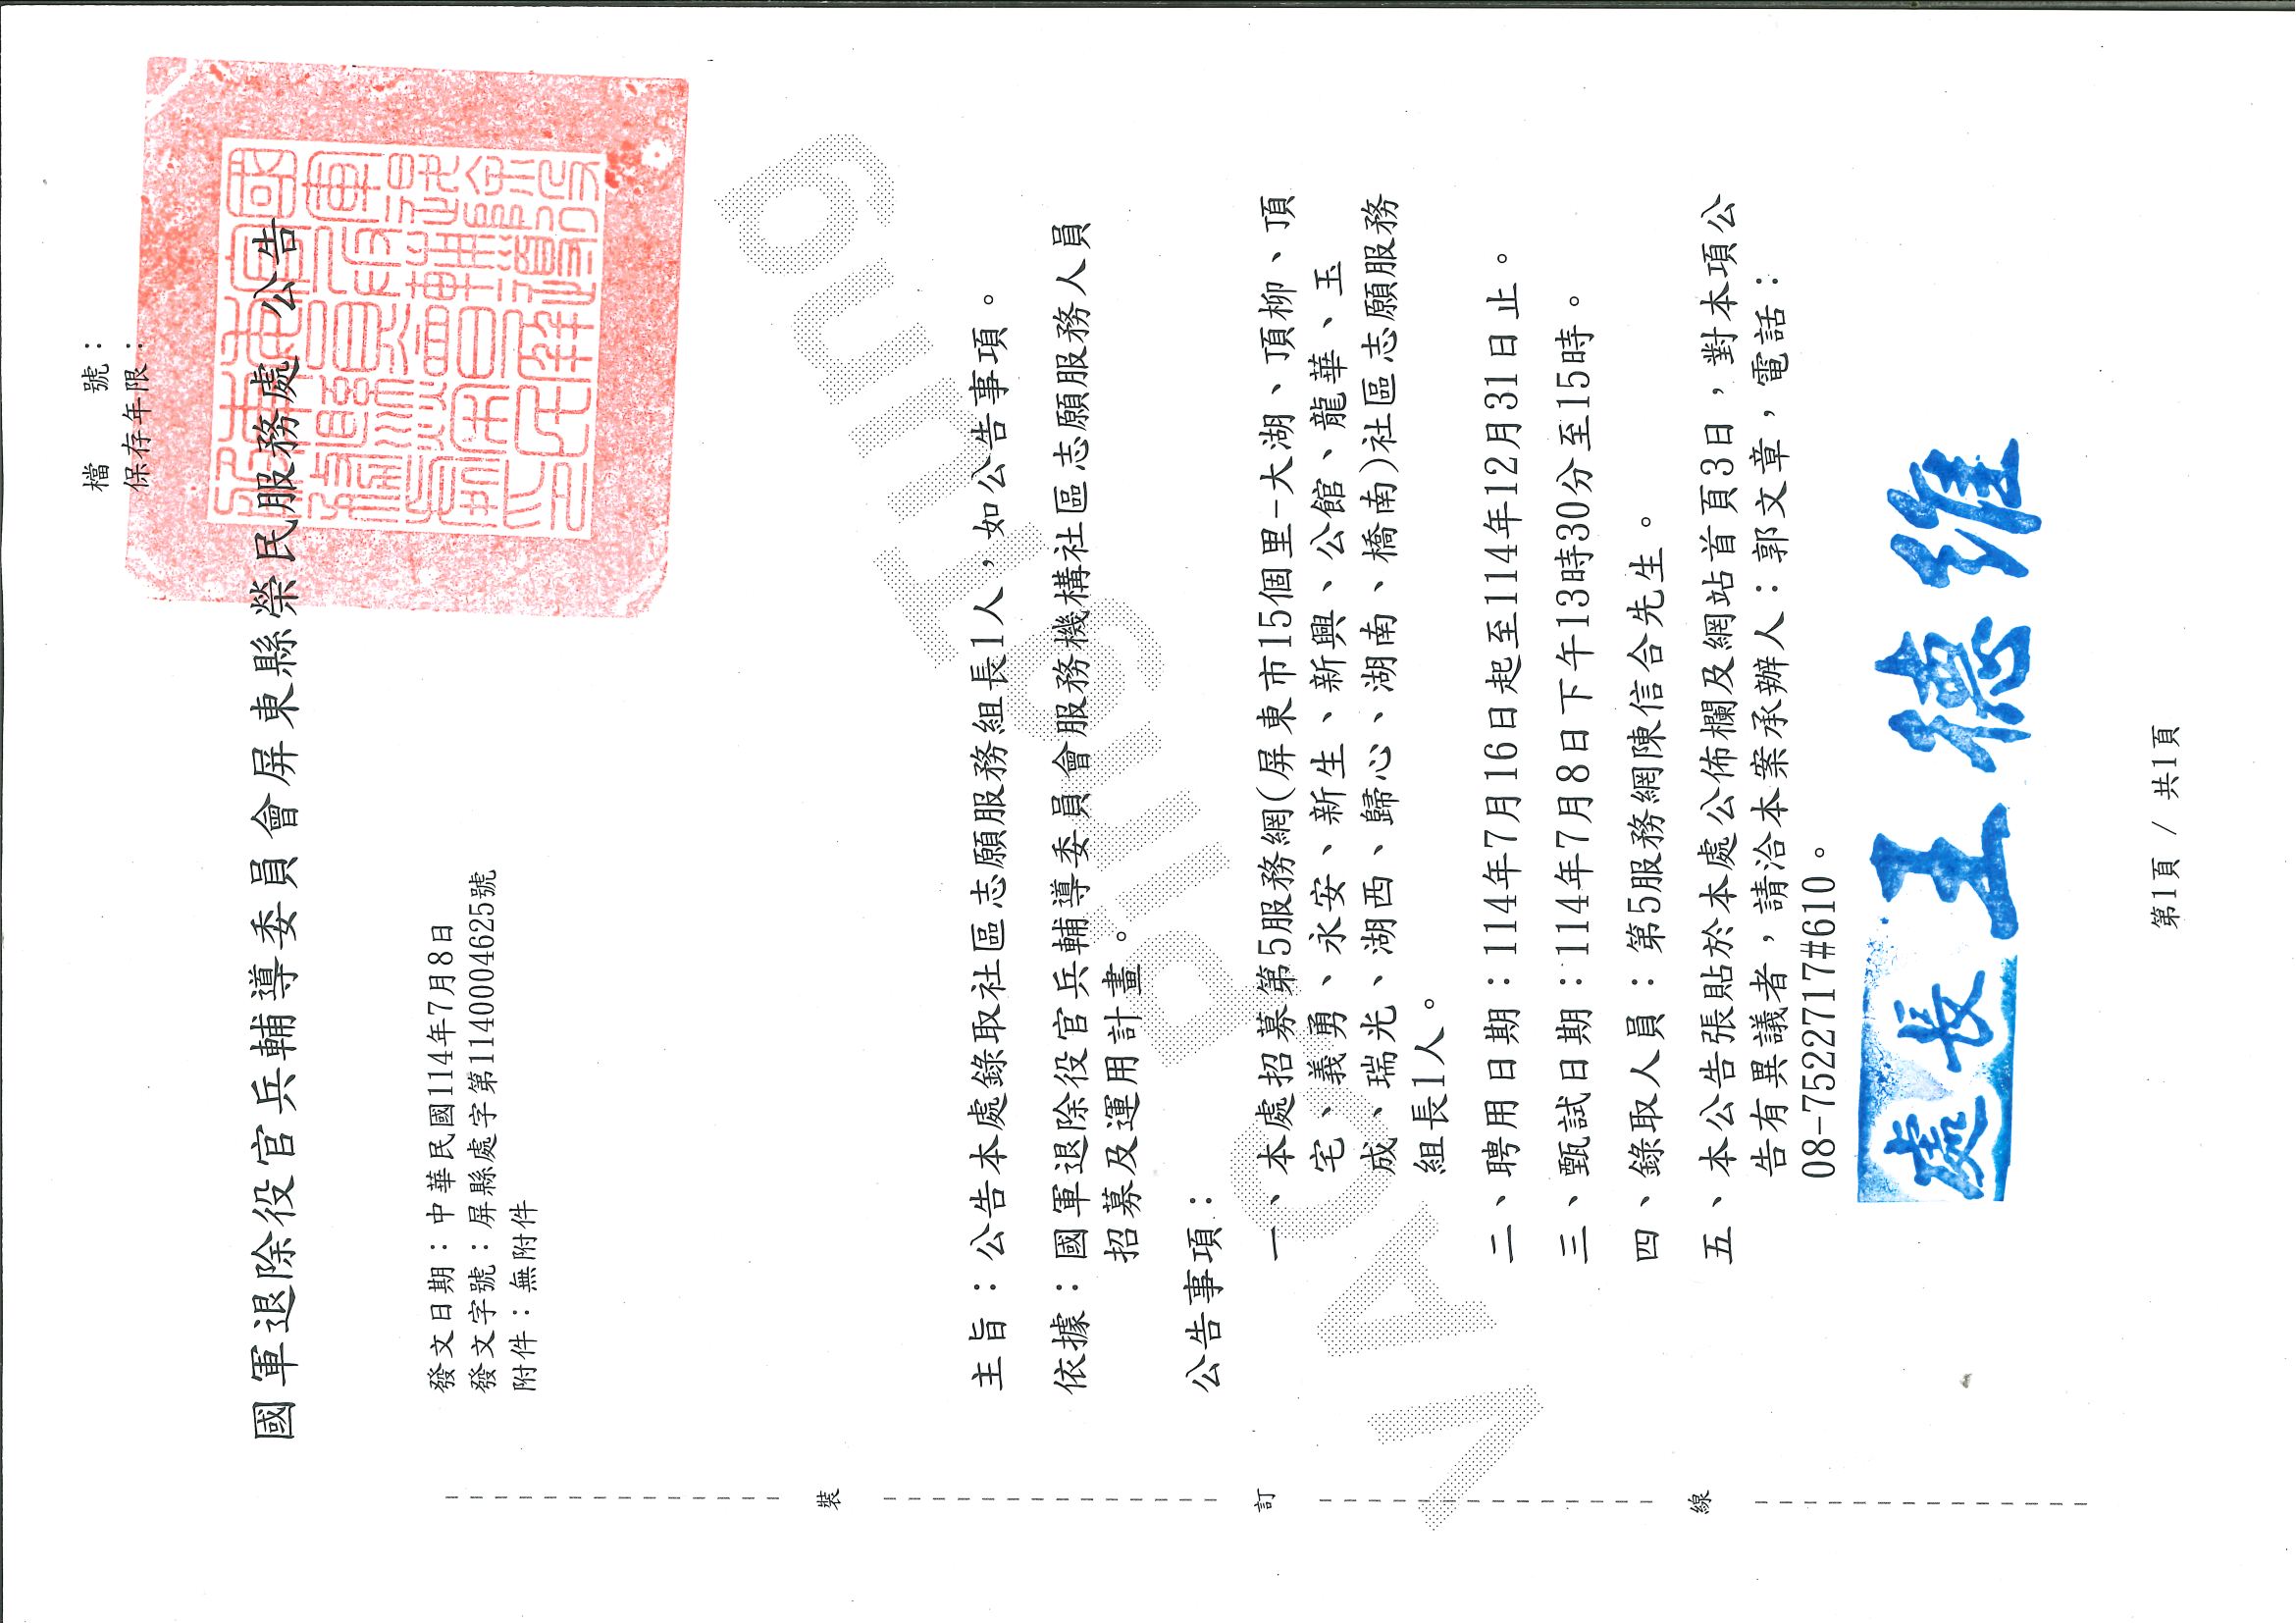 檔　　號：
保存年限：
國軍退除役官兵輔導委員會屏東縣榮民服務處　公告
發文日期：中華民國114年7月8日
發文字號：屏縣處字第1140004625號
附件：無附件
主旨：公告本處錄取社區志願服務組長1人，如公告事項。
依據：國軍退除役官兵輔導委員會服務機構社區志願服務人員
招募及運用計畫。
公告事項：
一、本處招募第5服務網(屏東市15個里-大湖、頂柳、頂
宅、義勇、永安、新生、新興、公館、龍華、玉
成、瑞光、湖西、歸心、湖南、橋南)社區志願服務
組長1人。
二、聘用日期：114年7月16日起至114年12月31日止。
三、甄試日期：114年7月8日下午13時30分至15時。
四、錄取人員：第5服務網陳信合先生。
五、本公告張貼於本處公佈欄及網站首頁3日，對本項公
告有異議者，請洽本案承辦人：郭文章，電話：
08-7522717#610。
處長 王德維
裝
訂
線
VAC PingTung
第1頁 / 共1頁